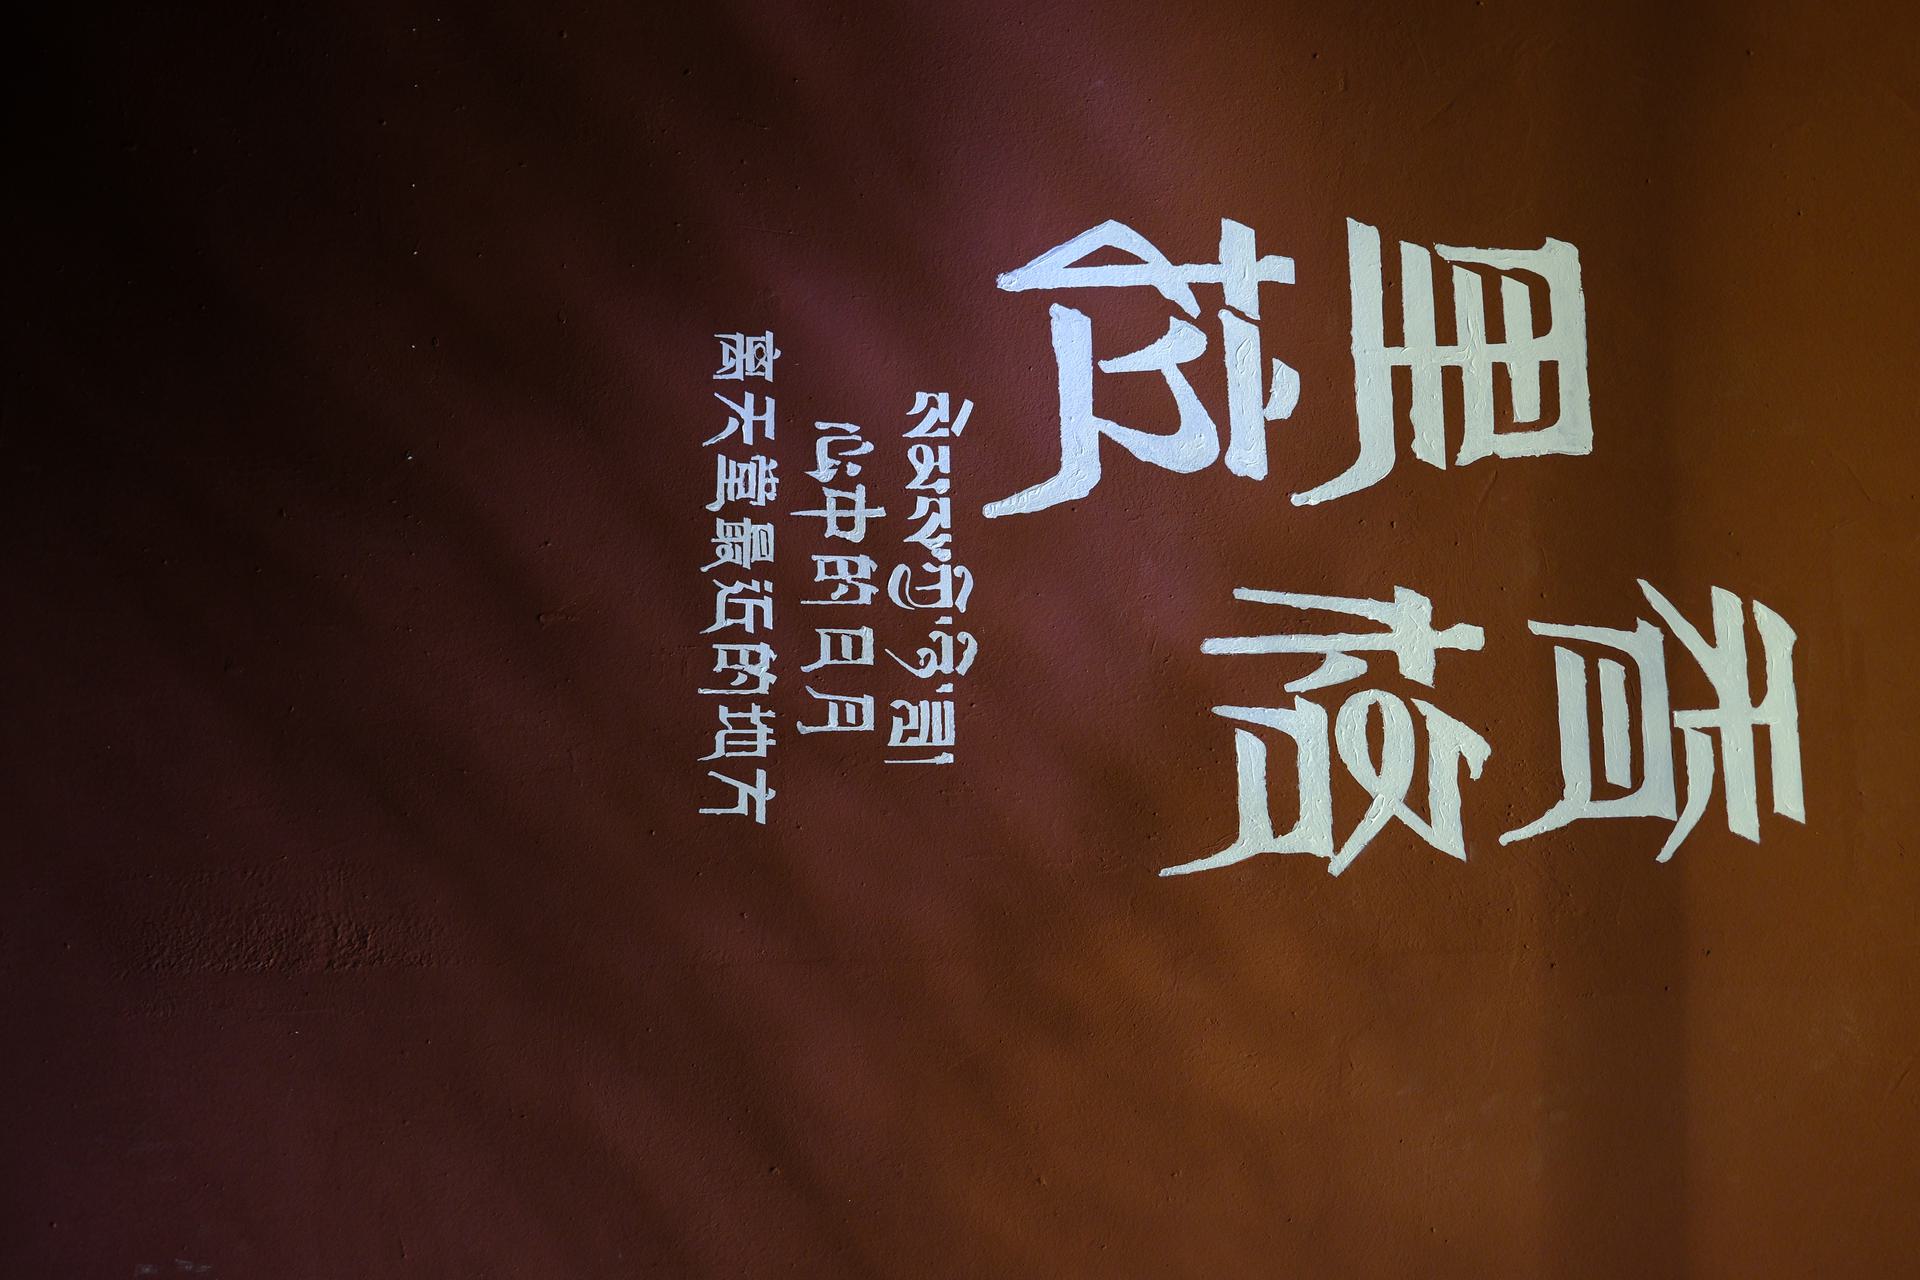 香格
里拉
སེམས་ཀྱི་ཉི་ཟླ།
心中的日月
离天堂最近的地方